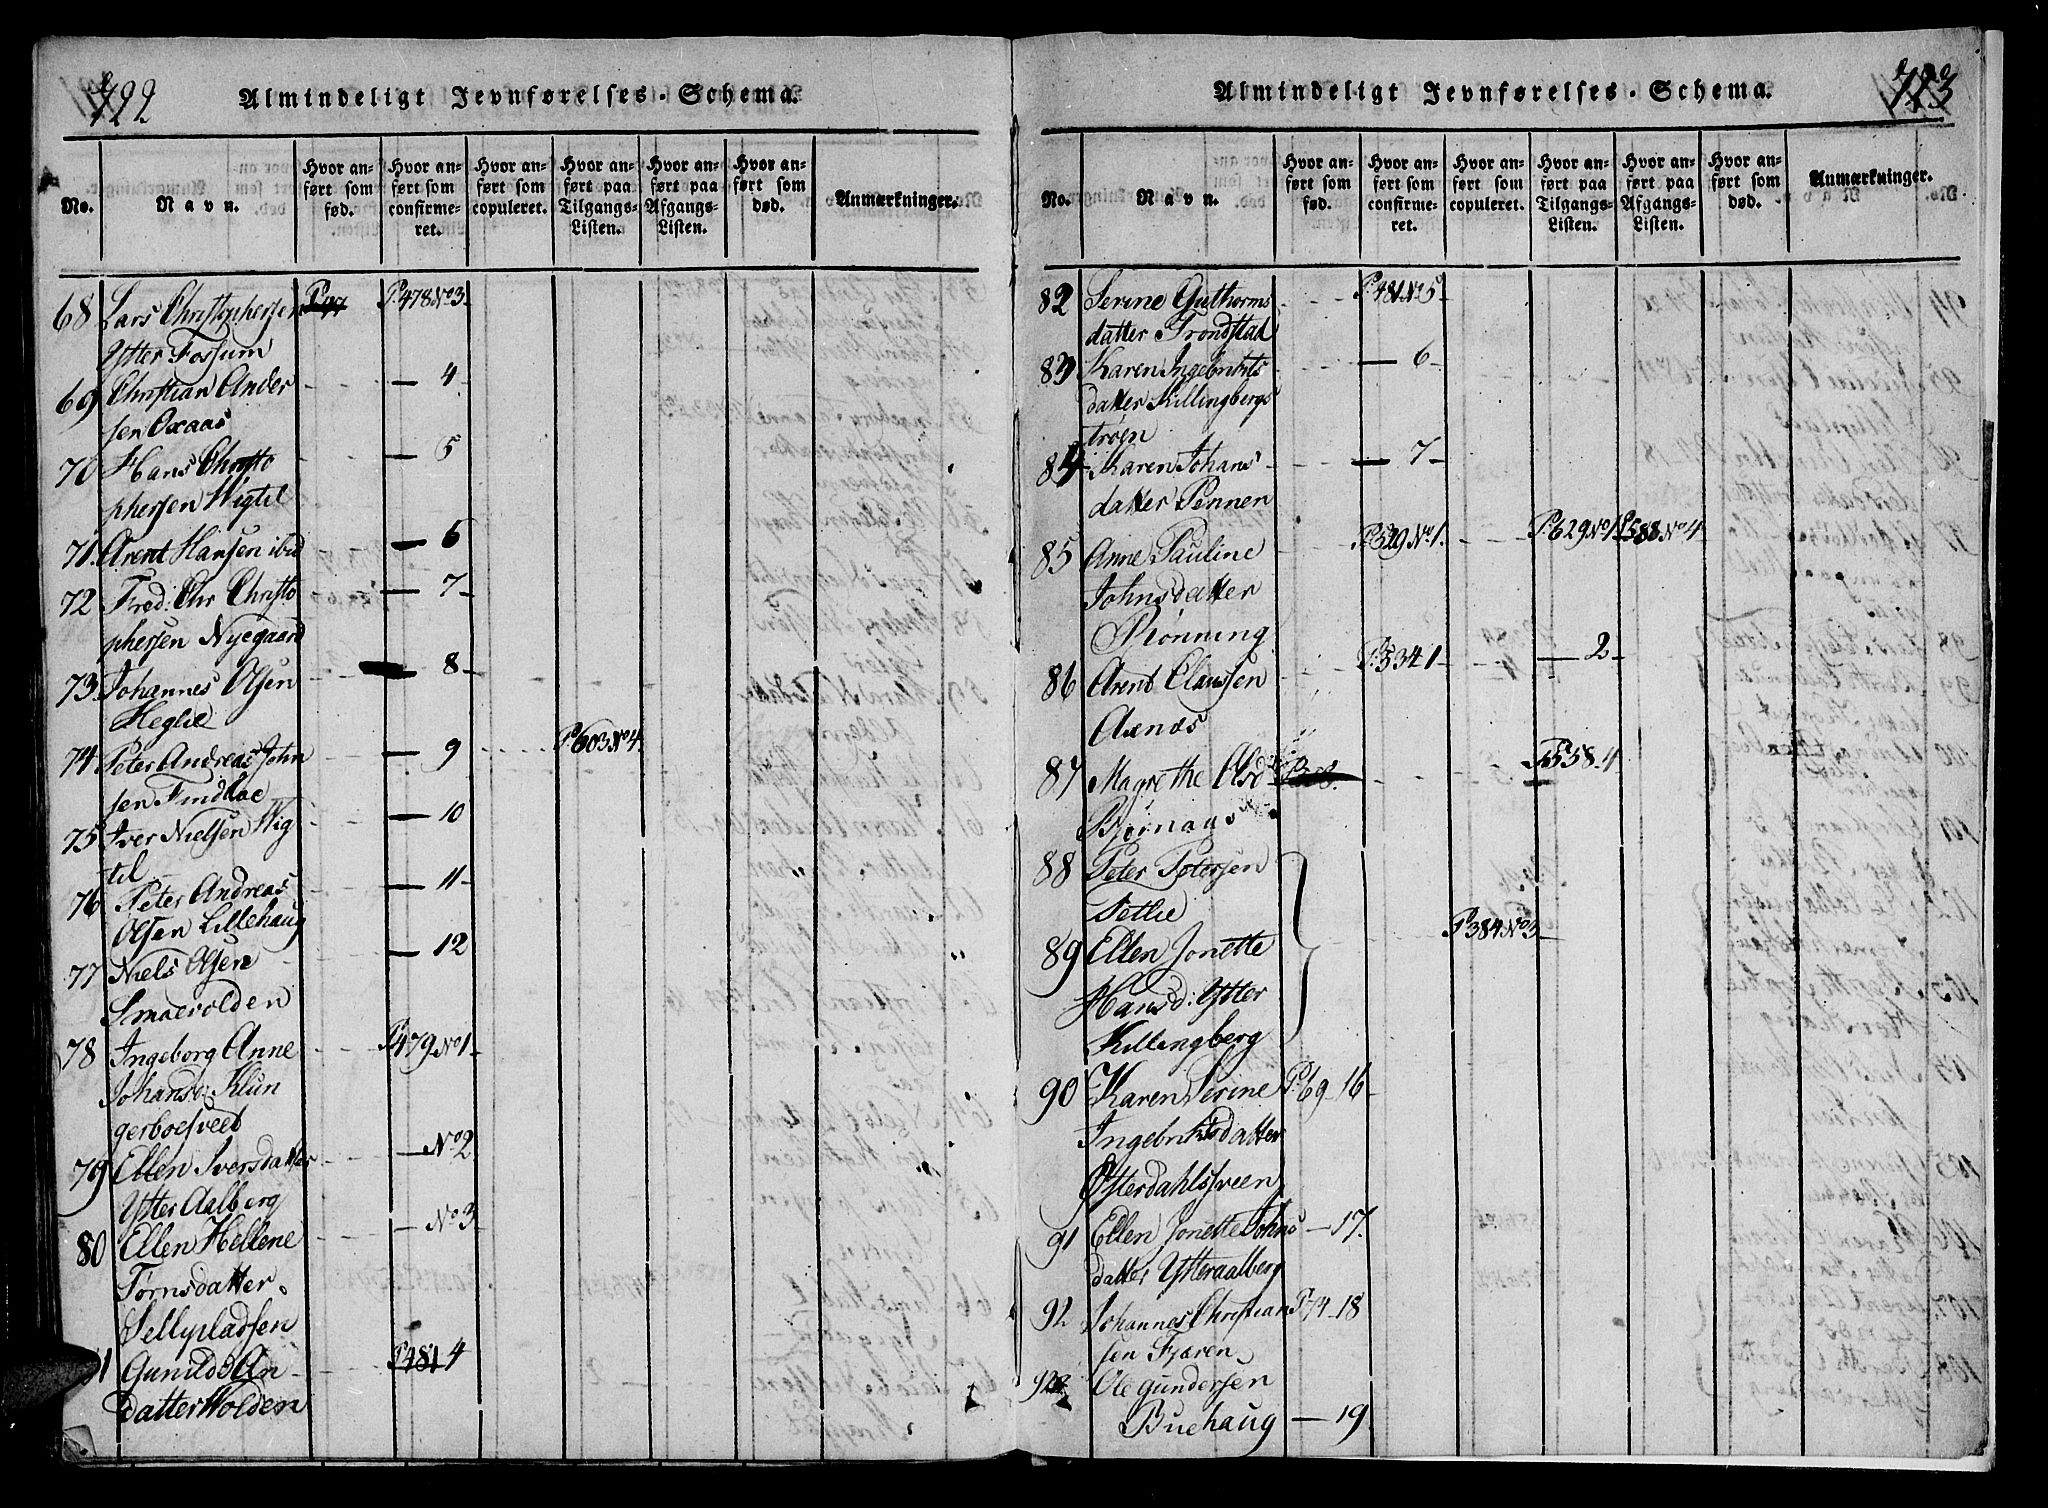 722
Almindeligt Jevnførelses-Schema.
No.
Navn.
Hvor anført som fød.
Hvor anført som confirmeret.
Hvor anført som copuleret.
Hvor anført paa Tilgangs-Listen.
Hvor anført paa Afgangs-Listen.
Hvor anført som død.
Anmærkninger.
68 Lars Christophersen P. 478 No 3
Ytter Fossum
69 Christian Ander — 4
sen Oxaas
70 Hans Christo — 5
phersen Wigtil
71. Arent Hansen ibid — 6
72 Fred: Chr Christo — 7
phersen Nyegaard
73 Johannes Olsen — 8
Heglie
74 Peter Andreas John — 9 P. 603 No 4.
sen Findlae
75 Iver Nielsen Wig — 10
til
76 Peter Andreas — 11
Olsen Lillehaug
77 Niels Olsen — 12
Smaevolden
78 Ingeborg Anne P. 479 No 1
Johansd: Klun
gerboesveet
79 Ellen Iversdatter — No 2
Ytter Aalberg
80 Ellen Hellene — No 3
Tørnsdatter
Sellypladsen
1 Gunild An P. 481 4
datter Wolden
Almindeligt Jevnførelses-Schema.
No.
Navn.
Hvor anført som fød.
Hvor anført som confirmeret.
Hvor anført som copuleret.
Hvor anført paa Tilgangs-Listen.
Hvor anført paa Afgangs-Listen.
Hvor anført som død.
Anmærkninger.
82 Serine Guthorms P. 481 No 5
datter Trondstad
83 Karen Ingebrikts — 6
datter Killingbergs
trøen
84 Karen Johans — 7
datter Pennen
85 Anne Pauline P. 529 No 1. P. 629 No 1 P. 588 No 4
Johnsdatter
Rønning
86 Arent Claussen P. 534 1 — 2
Axnæs
87 Magrethe Olsd 558. 4
Bjørnaas
88 Peter Petersen
Setlie
P. 384 No 3
89 Ellen Jonette
Hansd: Ytter
Killingberg
90 Karen Serine P. 69 16
Ingebriktsdatter
Østerdahlssveen
91 Ellen Jonette Johns — 17.
datter Ytteraalberg
92 Johannes Christian P. 74 18
sen Fjæren
Ole Gundersen
Buehaug — 19